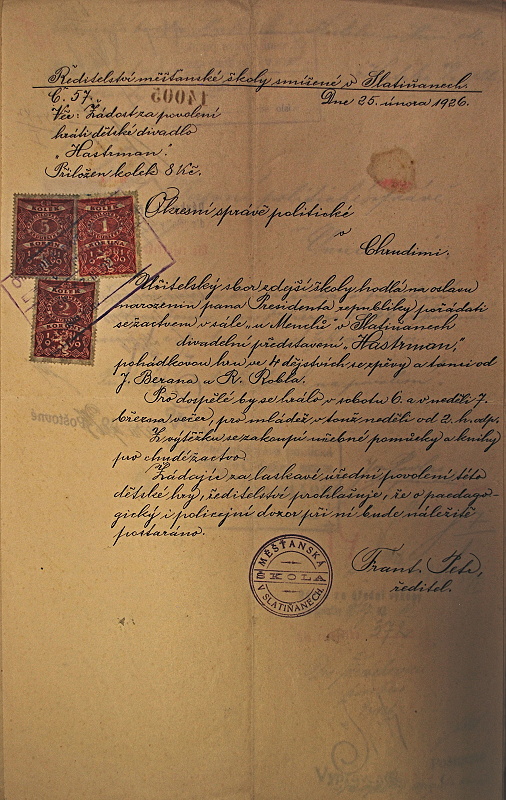 Ředitelství měšťanské školy smíšené v Slatiňanech.
Č. 57.
Dne 25. února 1926.
Věc: Žádost za povolení
hráti dětské divadlo
„Hastrman".
Přiložen kolek 8 Kč.
Okresní správě politické
v
Chrudimi.
Učitelský sbor zdejší školy hodlá na oslavu
narozenin pana Presidenta republiky pořádati
se žactvem v sále „u Menclů" v Slatiňanech
divadelní představení „Hastrman",
pohádkovou hru ve 4 dějstvích, se zpěvy a tanci od
J. Berana a R. Robla.
Pro dospělé by se hrálo v sobotu 6. a v neděli 7.
března večer, pro mládež v touž neděli od 2. h. odp.
Z výtěžku se zakoupí učebné pomůcky a knihy
pro chudé žactvo.
Žádajíc za laskavé úřední povolení této
dětské hry, ředitelství prohlašuje, že o paedago-
gický i policejní dozor při ní bude náležitě
postaráno.
Frant. Petr,
ředitel.
MĚŠŤANSKÁ
ŠKOLA
V SLATIŇANECH
KOLEK
5
KORUN
KOLEK
1
KORUNA
KOLEK
KORUN
14005